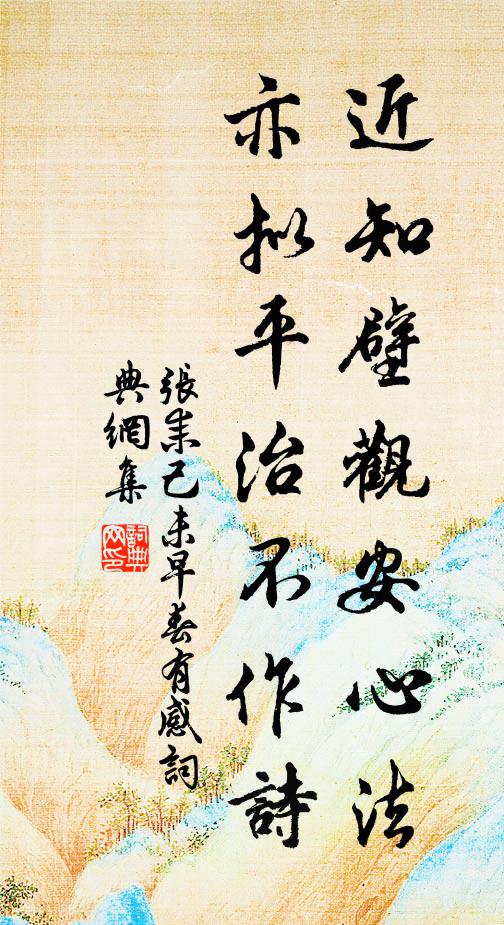 近知壁觀安心法
亦擬平治不作詩
張耒己未早春有感詞
典網集
詞典